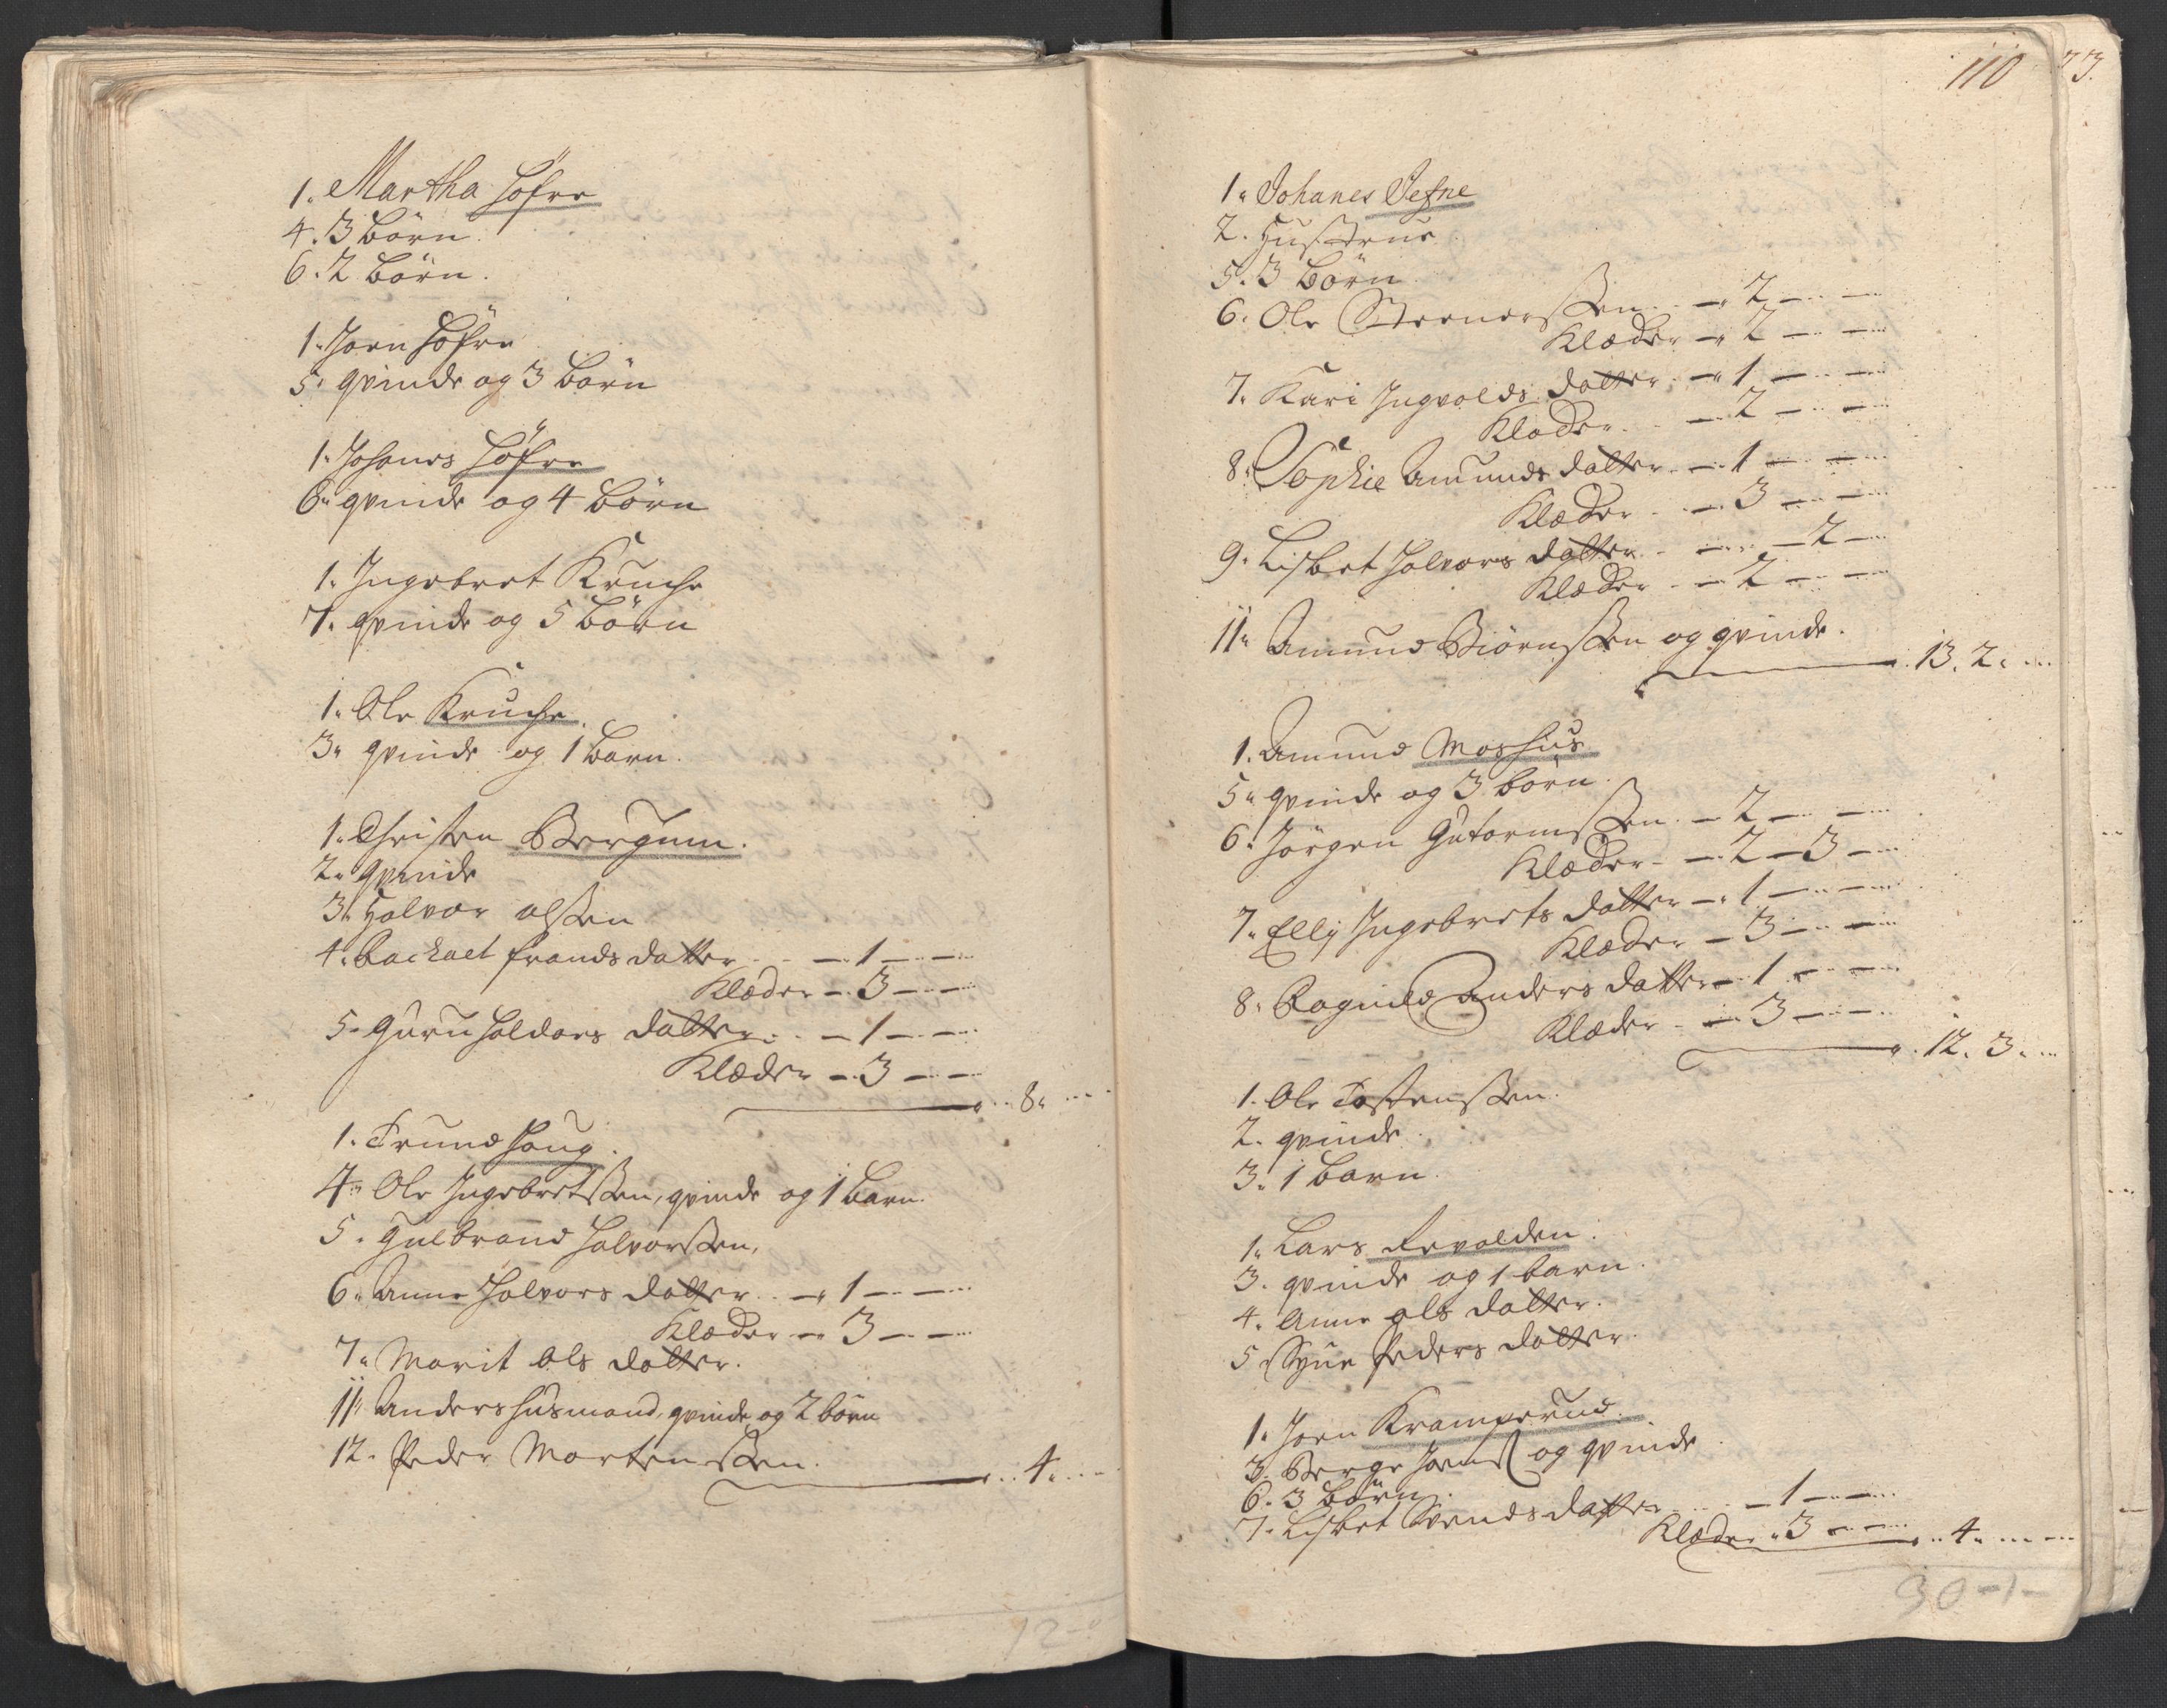 1. Martha Höfre
4. 3 Börn.
6. 2 Börn.
1. Joen Höfre
5. qvinde og 3 Börn
1. Johanes Höfre
6. qvinde og 4 Börn
1. Ingebret Kruche
7. qvinde og 5 Börn
1. Ole Kruche.
3. qvinde og 1 Barn.
1. Christen Bergum.
2. qvinde
3. Halvor olsen
4. Rachael frands datter - 1 - -
Klæder - 3 - -
5. Guru Haldors datter - 1 - -
Klæder - 3 - -
8. -
1. Trund Houg.
4. Ole Ingebretsen, qvinde og 1 Barn.
5. Gulbrand Halvorsen,
6. Anne Halvors datter - 1 - -
Klæder - 3 - -
7. Marit Ols datter.
11. Anders husmand, qvinde og 2 börn
12. Peder Mortensen.
4. -
12-0
110
77.
1. Johanes Jefne
2. Hustrue
5. 3 Börn
6. Ole Steenersen - 2 - -
Klæder - 2 - -
7. Kari Ingvolds datter - 1 - -
Klæder - 2 - -
8. Sophie Amunds datter - 1 - -
Klæder - 3 - -
9. Lisbet Halvors datter - - 2 -
Klæder - 2 - -
11. Amund Biörnsen og qvinde.
13. 2. -
1. Amund Moshus
5. qvinde og 3 börn.
6. Jörgen Gutormsen - 2 - -
Klæder - 2 - 3 -
7. Elly Ingebrets datter - 1 - -
Klæder - 3 - -
8. Ragnild Anders datter - 1 - -
Klæder - 3 - -
12. 3. -
1. Ole Tostensen.
2. qvinde
3. 1 Barn.
1. Lars Revolden.
3. qvinde og 1 barn.
4. Anne ols datter.
5. Syne Peders datter.
1. Joen Kramperud.
3. Berge Joens og qvinde
6. 3 Börn.
7. Lisbet Svends datter - 1 - -
Klæder - 3 - -
4. -
30-1-